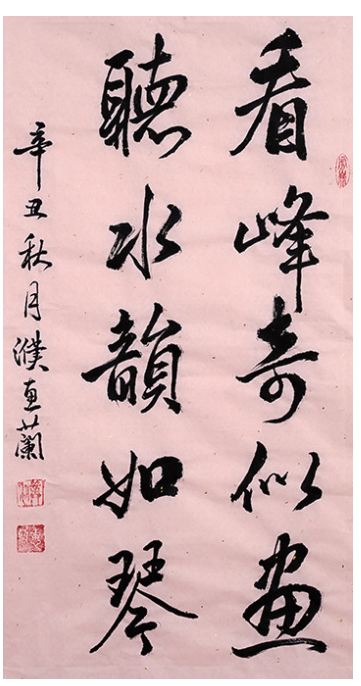 看峰奇似画
聽水韻如琴
辛丑秋月濮直蘭